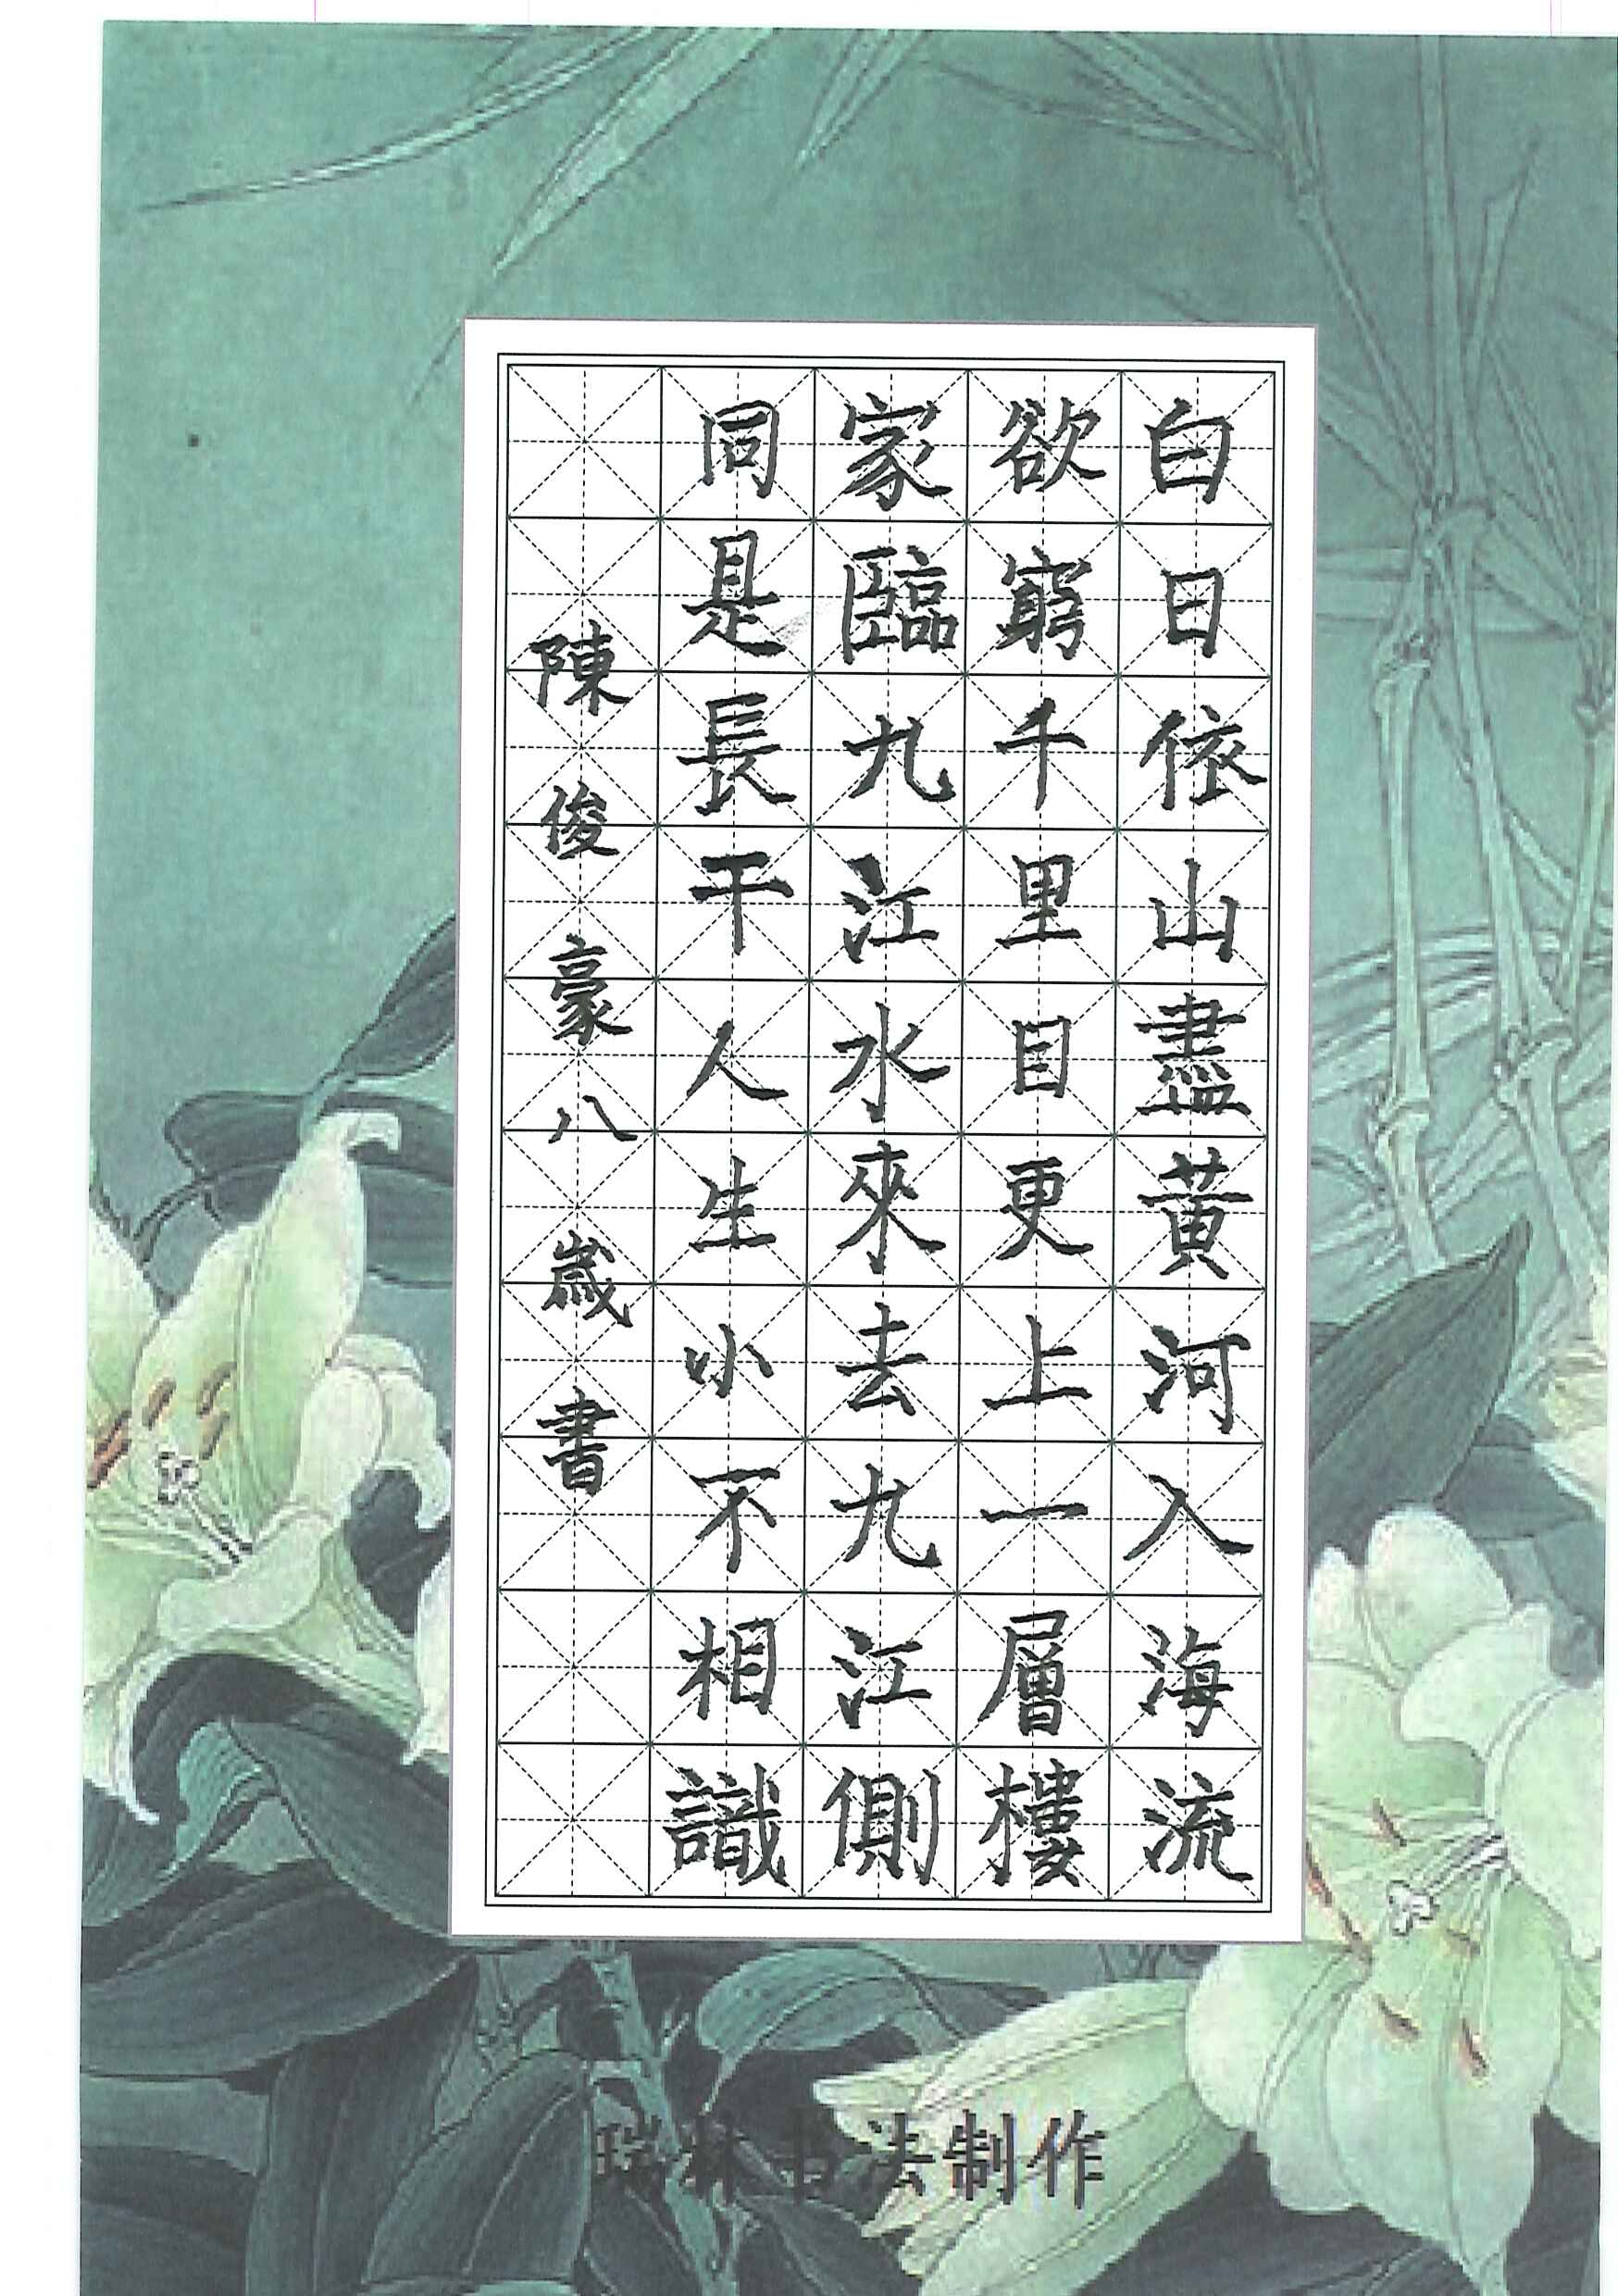 白日依山盡黃河入海流
欲窮千里目更上一層樓
家臨九江水來去九江側
同是長干人生小不相識
陳俊豪八歲書
瑞林书法制作